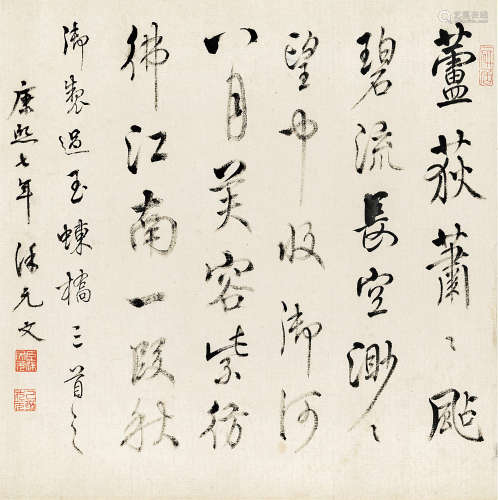 蘆荻蕭〻颭
碧流長空渺〻
望中收御河
八月芙容紫彷
彿江南一段秋
御製過玉蝀橋三首之
康熙七年徐元文